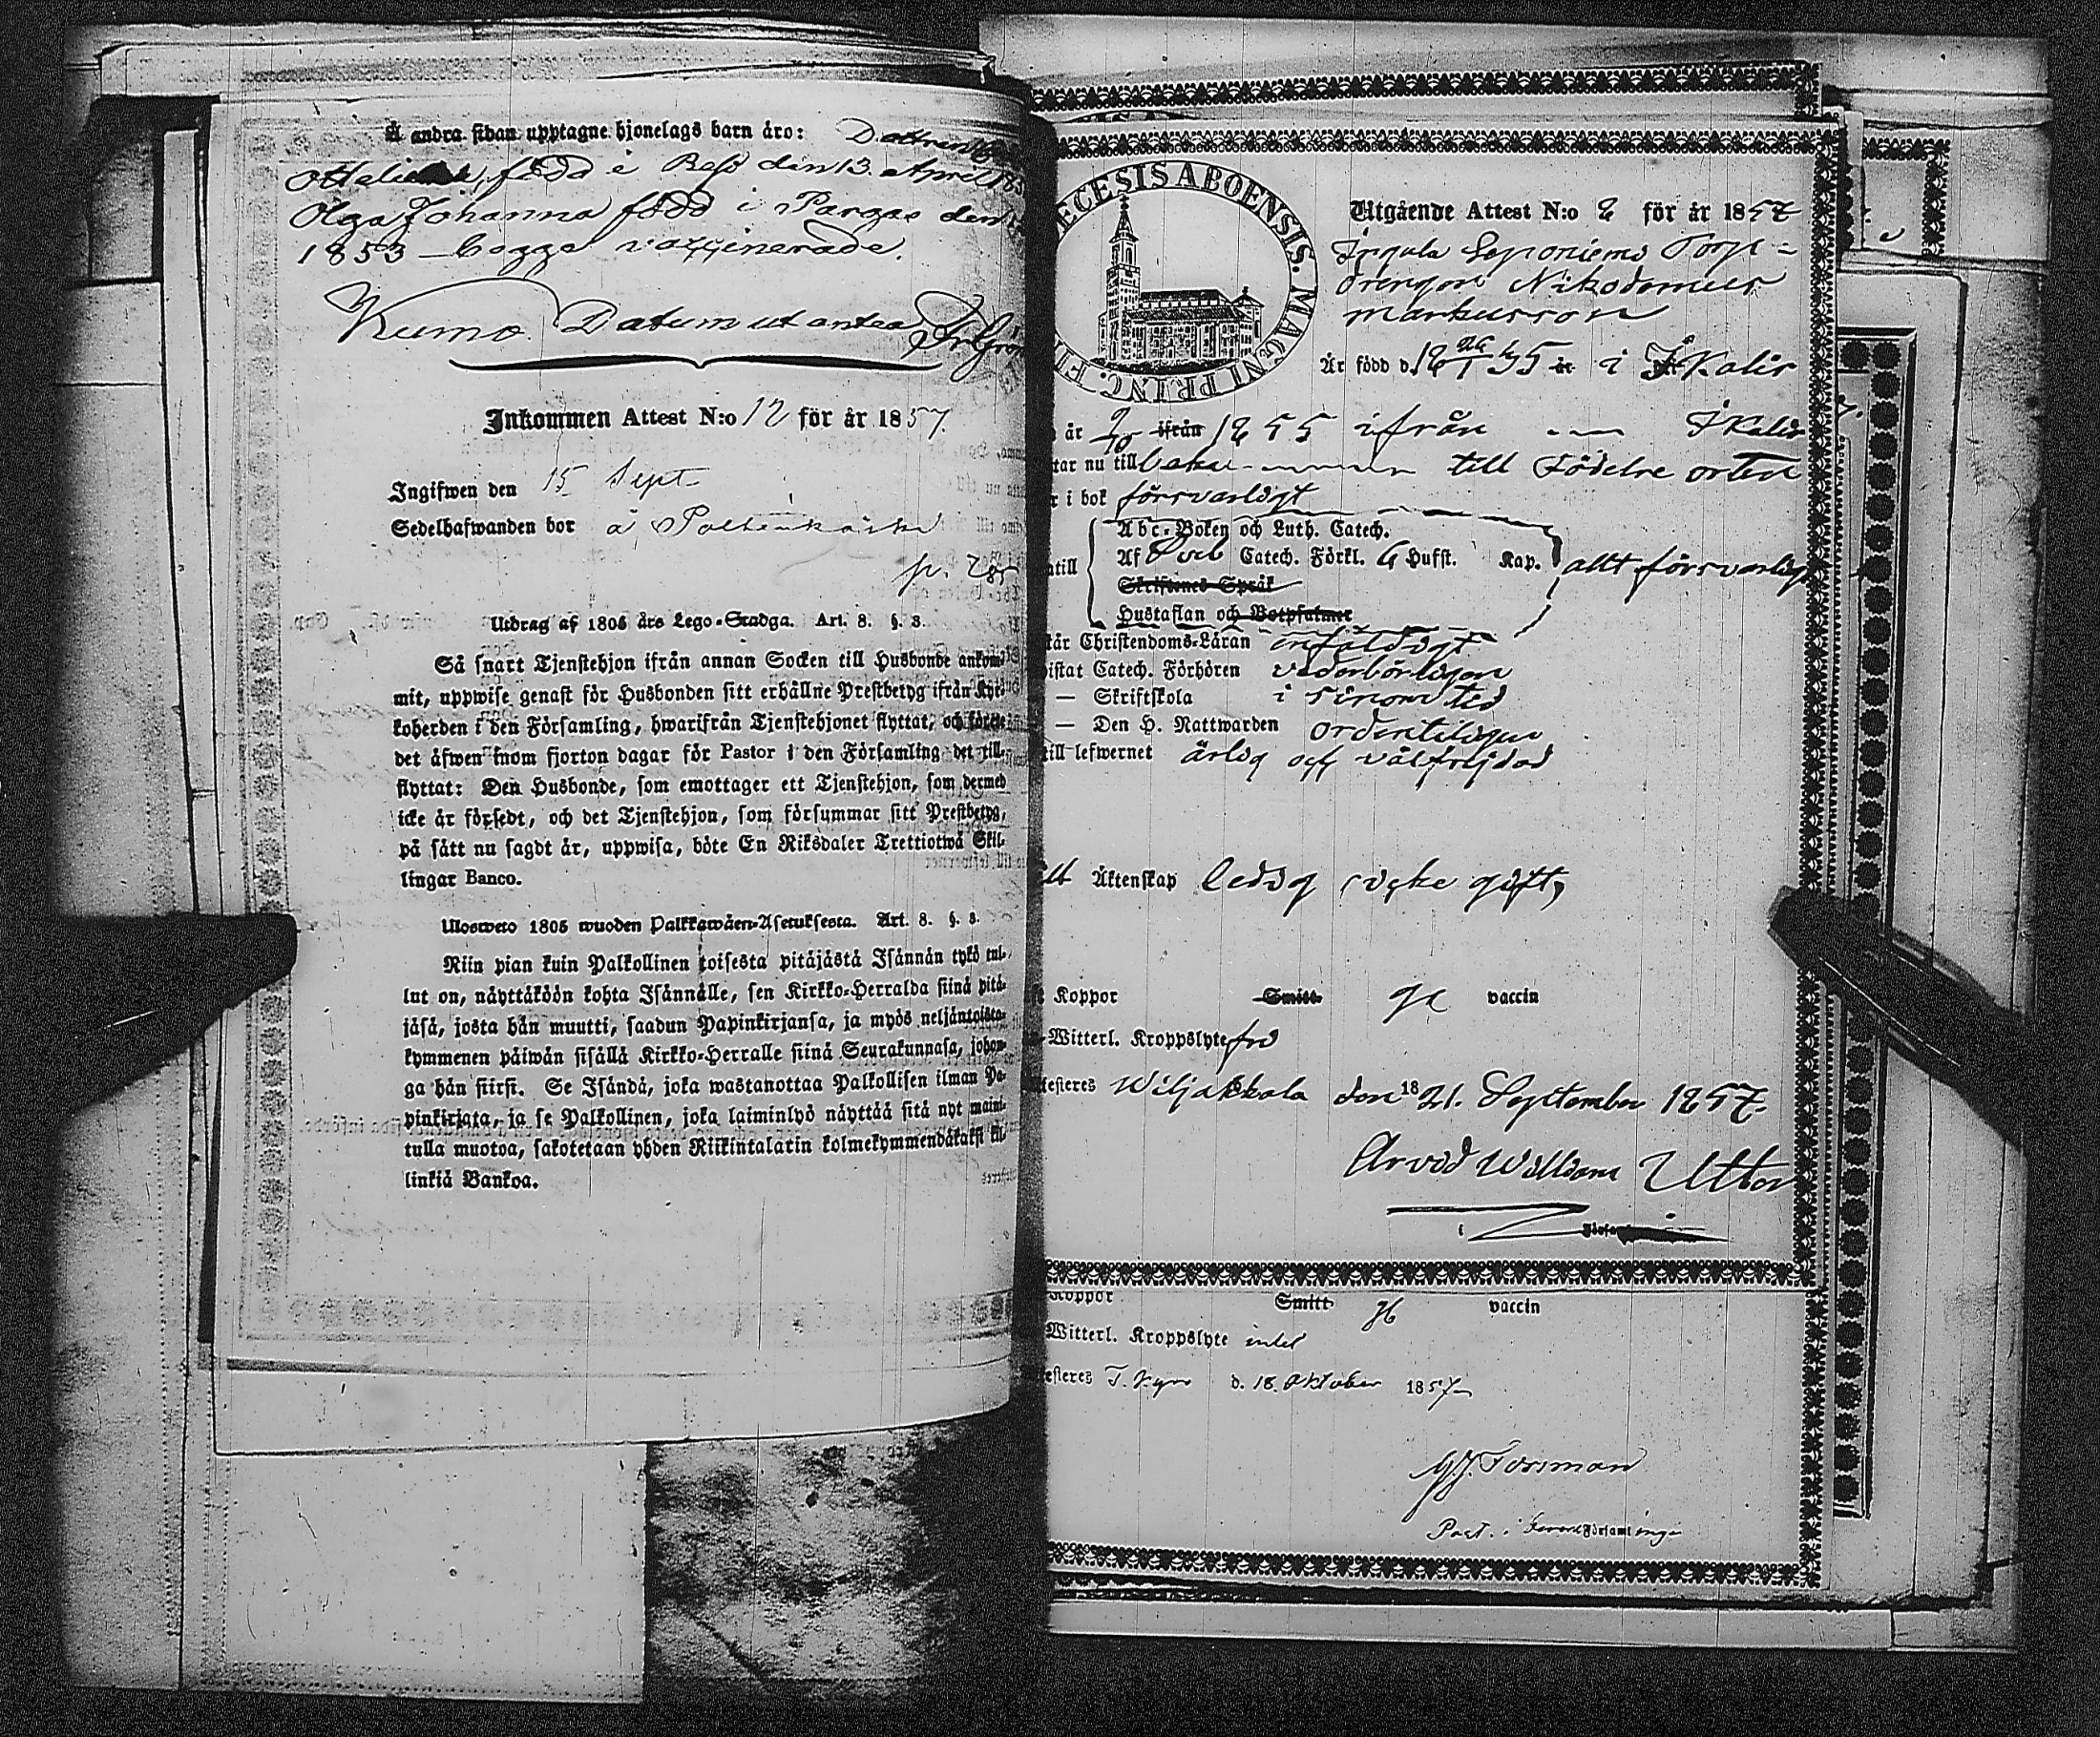 Å andra sidan upptagne hjonelags barn äro: Dottren
född i den 13. April
Olga Johanna född i Pargas den
1853 — begge vaccinerade.
Kumo. Datum ut antea
Inkommen Attest N:o 12 för år 1857.
Ingifwen den 15 Sept.
Sedelhafwanden bor å
p. 285
Utdrag af 1805 års Lego-Stadga. Art. 8. §. 3.
Så snart Tjenstehjon ifrån annan Socken till Husbonde ankom-
mit, uppwise genast för Husbonden sitt erhållne Prestbetyg ifrån Kyr-
koherden i den Församling, hwarifrån Tjenstehjonet flyttat, och förete
det äfwen inom fjorton dagar för Pastor i den Församling det till-
flyttat: Den Husbonde, som emottager ett Tjenstehjon, som dermed
icke är försedt, och det Tjenstehjon, som försummar sitt Prestbetyg,
på sätt nu sagdt är, uppwisa, böte En Riksdaler Trettiotwå Skil-
lingar Banco.
Ulosweto 1805 wuoden Palkkawäen-Asetuksesta. Art. 8. §. 3.
Niin pian kuin Palkollinen toisesta pitäjästä Isännän tykö tul-
lut on, näyttäköön kohta Isännälle, sen Kirkko-Herralda siinä pitä-
jäsä, josta hän muutti, saadun Papinkirjansa, ja myös neljäntoista-
kymmenen päiwän sisällä Kirkko-Herralle siinä Seurakunnasa, johon-
ga hän siirsi. Se Isändä, joka wastanottaa Palkollisen ilman Pa-
pinkirjata, ja se Palkollinen, joka laiminlyö näyttää sitä nyt maini-
tulla muotoa, sakotetaan yhden Riikintalarin kolmekymmendäkaksi kil-
linkiä Bankoa.
ECESIS ABOENSIS. MAGNI PRINC. FI
Utgående Attest N:o 2 för år 1857
Leponiemi Torp-
drengen Nikodemus
Markusson
Är född d. 18 26/1 35 år i Ikalis
år 2/10 ifrån 1855 ifrån Ikalis
tar nu tillbaka till Födelse orten
r i bok försvarligt
Abc-Boken och Luth. Catech.
atill Af Catech. Förkl. Husst. Kap. allt försvarligt
Skriftenes Språk
Hustaflan och Botpsalmer
tår Christendoms-Läran enfäldigt
istat Catech. Förhören vederbörligen
— Skriftskola i sinom tid
— Den H. Nattwarden ordentligen
till lefwernet ärlig och välfrejdad
Äktenskap ledig icke gift,
Koppor Smitt vaccin
Witterl. Kroppslyte fri
testeres Wiljakkala den 18 21. September 1857.
Arvid William
i
Koppor Smitt vaccin
Witterl. Kroppslyte intet
testeres T. Kyro d. 18. Oktober 1857
Forsman
Past. i Församlinge